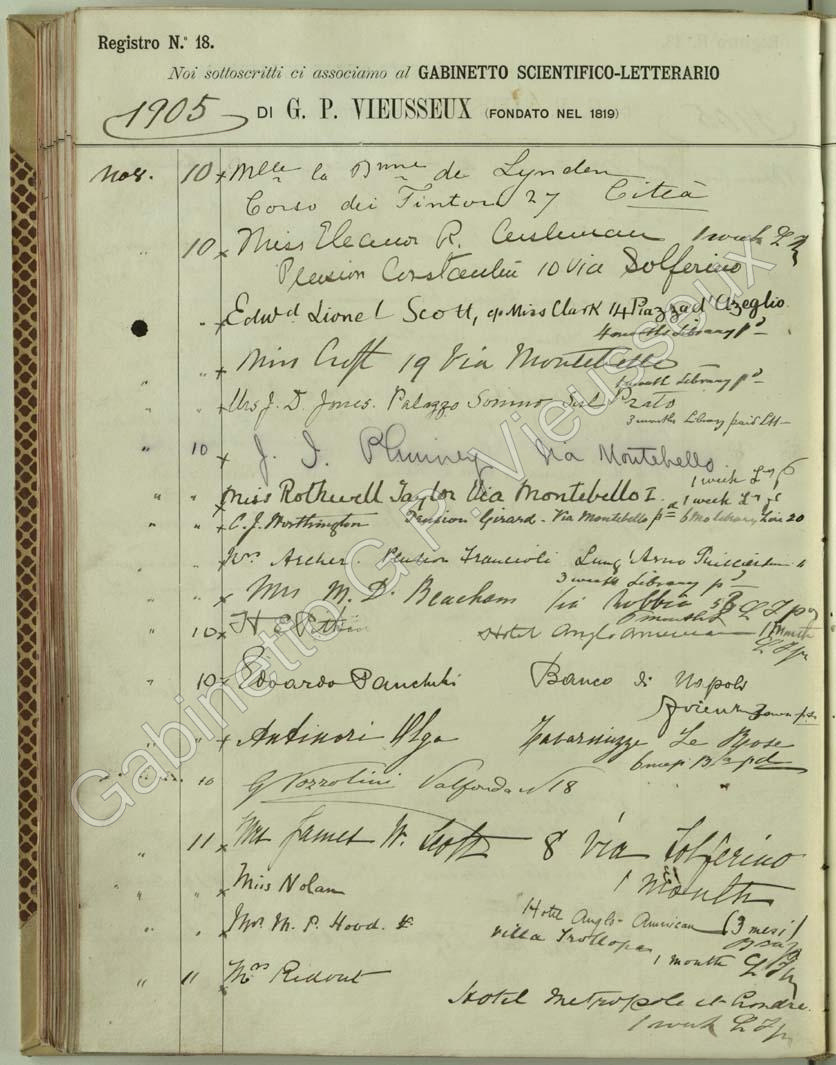 Registro N.º 18.
Noi sottoscritti ci associamo al GABINETTO SCIENTIFICO-LETTERARIO
1905 DI G. P. VIEUSSEUX (FONDATO NEL 1819)
Nov. 10 x Mlle la Bnne de Lynden
Corso dei Tintori 27 Città
10 x Miss Eleanor R. Cushman 1 week
Pension Costantini 10 via Solferino
" x Edwd Lionel Scott, c/o Miss Clark 14 Piazza d'Azeglio.
4 months Library pd
" " + Miss Croft 19 Via Montebello
1 month Library pd
" " + Mrs J. D. Jones. Palazzo Sul Prato
3 months Library paid
" 10 + J. I. Via Montebello
1 week
" " x Miss Rothwell Taylor Via Montebello I. 1 week
" " x C. J. Worthington Pension Girard - Via Montebello pd 6 mo library Lire 20
" " Archer. Pension Francioli Lung'Arno
3 weeks Library pd
" " x Mrs M. D. Beacham Via Robbia
" 10 x Hotel Anglo American 1 Month
" 10 x Edoardo Banco di Napoli
" " + Antinori Olga Tavarnuzze Le Rose
6 mesi pd
" " 10 G Vozzolini Valfonda N 18
" 11 x Mrs James W. Scott 8 Via Solferino
" " x Miss Nolan 1 Month
" " x Mrs M. P. Hood. Hotel Anglo-American (3 mesi)
Villa Trollope
1 month
" 11 x Mrs Ridout
Hotel Metropole et Londre.
1 week
Gabinetto G.P. Vieusseux